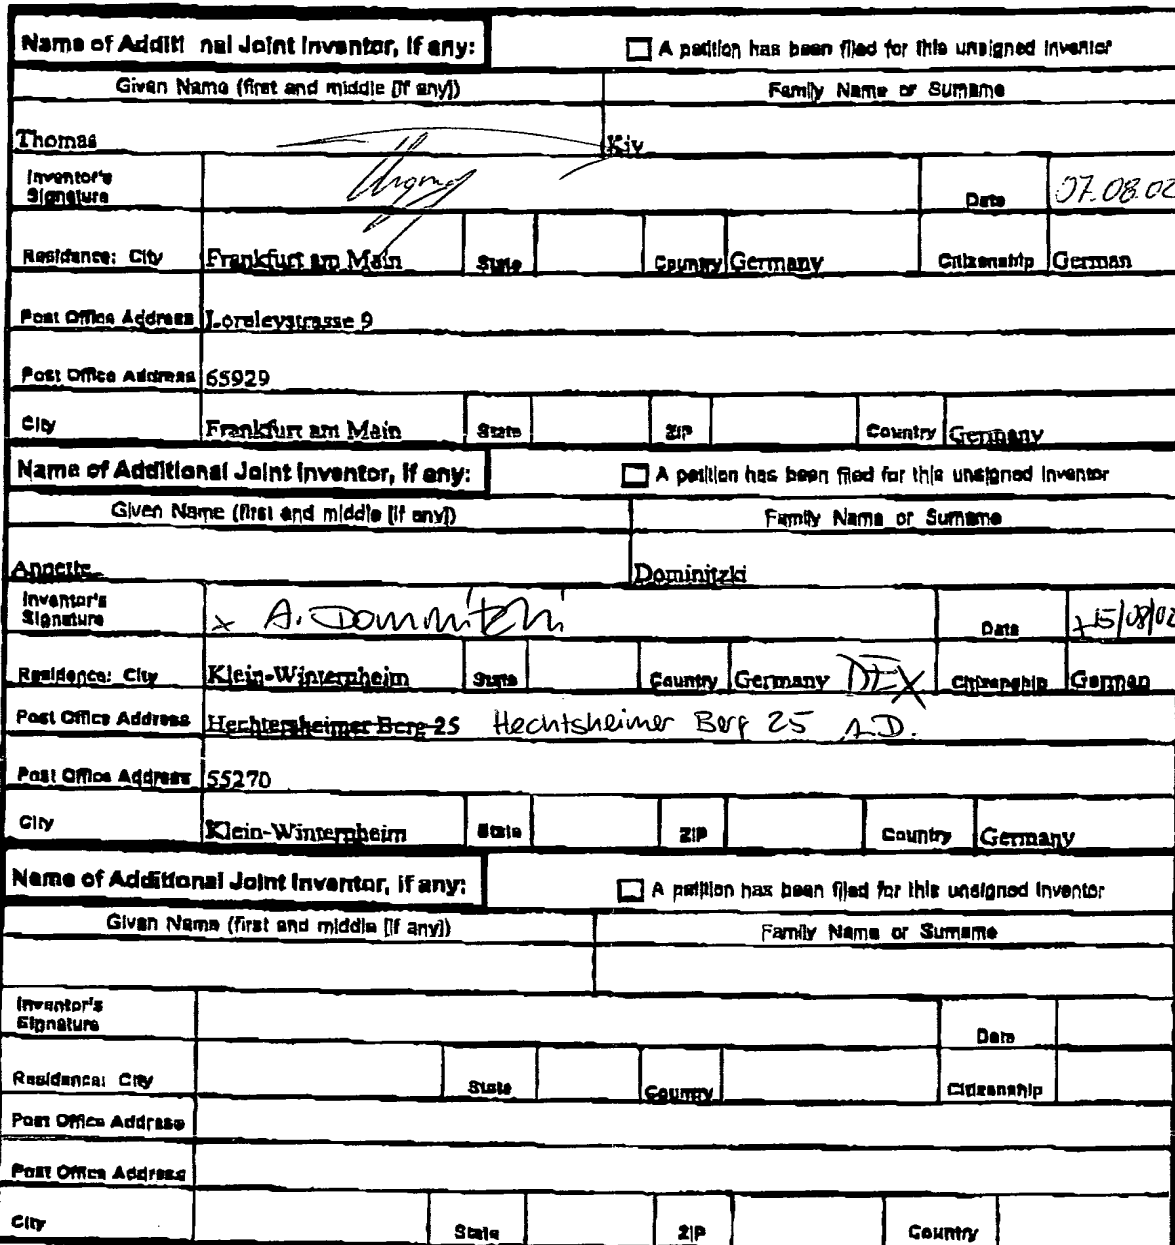 Name of Additi nal Joint Inventor, if any: A petition has been filed for this unsigned inventor
Given Name (first and middle [if any]) Family Name or Surname
Thomas Kiy
Inventor's Signature Date 07.08.02
Residence: City Frankfurt am Main State Country Germany Citizenship German
Post Office Address Loreleystrasse 9
Post Office Address 65929
City Frankfurt am Main State ZIP Country Germany
Name of Additional Joint Inventor, if any: A petition has been filed for this unsigned inventor
Given Name (first and middle [if any]) Family Name or Surname
Annette Dominitzki
Inventor's Signature x A. Dominitzki Date x 15/08/02
Residence: City Klein-Winternheim State Country Germany DEX Citizenship German
Post Office Address Hechtersheimer Berg 25 Hechtsheimer Berg 25 A.D.
Post Office Address 55270
City Klein-Winternheim State ZIP Country Germany
Name of Additional Joint Inventor, if any: A petition has been filed for this unsigned inventor
Given Name (first and middle [if any]) Family Name or Surname
Inventor's Signature Date
Residence: City State Country Citizenship
Post Office Address
Post Office Address
City State ZIP Country